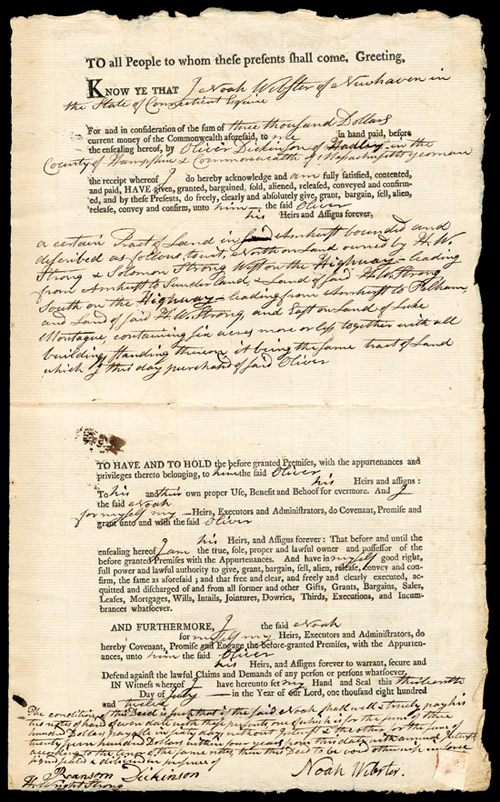 TO all People to whom these presents shall come, Greeting.
KNOW YE THAT I Noah Webster of Newhaven in
the State of Connecticut Esquire
For and in consideration of the sum of three thousand Dollars
current money of the Commonwealth aforesaid, to me in hand paid, before
the ensealing hereof, by Oliver Dickinson of Hadley in the
County of Hampshire & Commonwealth of Massachusetts yeoman
the receipt whereof I do hereby acknowledge and am fully satisfied, contented,
and paid, HAVE given, granted, bargained, sold, aliened, released, conveyed and confirm-
ed, and by these Presents, do freely, clearly and absolutely give, grant, bargain, sell, alien,
release, convey and confirm, unto him the said Oliver
his Heirs and Assigns forever,
a certain Tract of Land in Amherst bounded and
described as follows, to wit, North on Land owned by H. W.
Strong & Solomon Strong West on the Highway leading
from Amherst to Sunderland, & Land of said H. W. Strong
South on the Highway leading from Amherst to Pelham,
and Land of said H. W. Strong, and East on Land of Luke
Montague, containing six acres more or less together with all
buildings standing thereon it being the same tract of Land
which I this day purchased of said Oliver
TO HAVE AND TO HOLD the before granted Premises, with the appurtenances and
privileges thereto belonging, to him the said Oliver
his Heirs and assigns:
To his and their own proper Use, Benefit and Behoof for evermore. And I
the said Noah
for myself my Heirs, Executors and Administrators, do Covenant, Promise and
grant unto and with the said Oliver
his Heirs, and Assigns forever: That before and until the
ensealing hereof I am the true, sole, proper and lawful owner and possessor of the
before granted Premises with the Appurtenances. And have in myself good right,
full power and lawful authority to give, grant, bargain, sell, alien, release, convey and con-
firm, the same as aforesaid; and that free and clear, and freely and clearly executed, ac-
quitted and discharged of and from all former and other Gifts, Grants, Bargains, Sales,
Leases, Mortgages, Wills, Intails, Jointures, Dowries, Thirds, Executions, and Incum-
brances whatsoever.
AND FURTHERMORE, I the said Noah
for myself my Heirs, Executors and Administrators, do
hereby Covenant, Promise and Engage the before-granted Premises, with the Appurten-
ances, unto him the said Oliver
his Heirs, and Assigns forever to warrant, secure and
Defend against the lawful Claims and Demands of any person or persons whatsoever.
IN Witness whereof I have hereunto set my Hand and Seal this thirteenth
Day of July in the Year of our Lord, one thousand eight hundred
and twelve
The condition of this Deed is such that if the said Noah shall well & truly pay his
two notes of hand of even date with these presents, one of which is for the sum of three
hundred Dollars payable in sixty days without interest & the other for the sum of
twenty seven hundred Dollars within four years from this date with annual interest
according to the tenor of the same notes, then this Deed to be void otherwise in force
signed sealed & delivered in presence of
Ransom Dickinson
H. Wright Strong
Noah Webster.